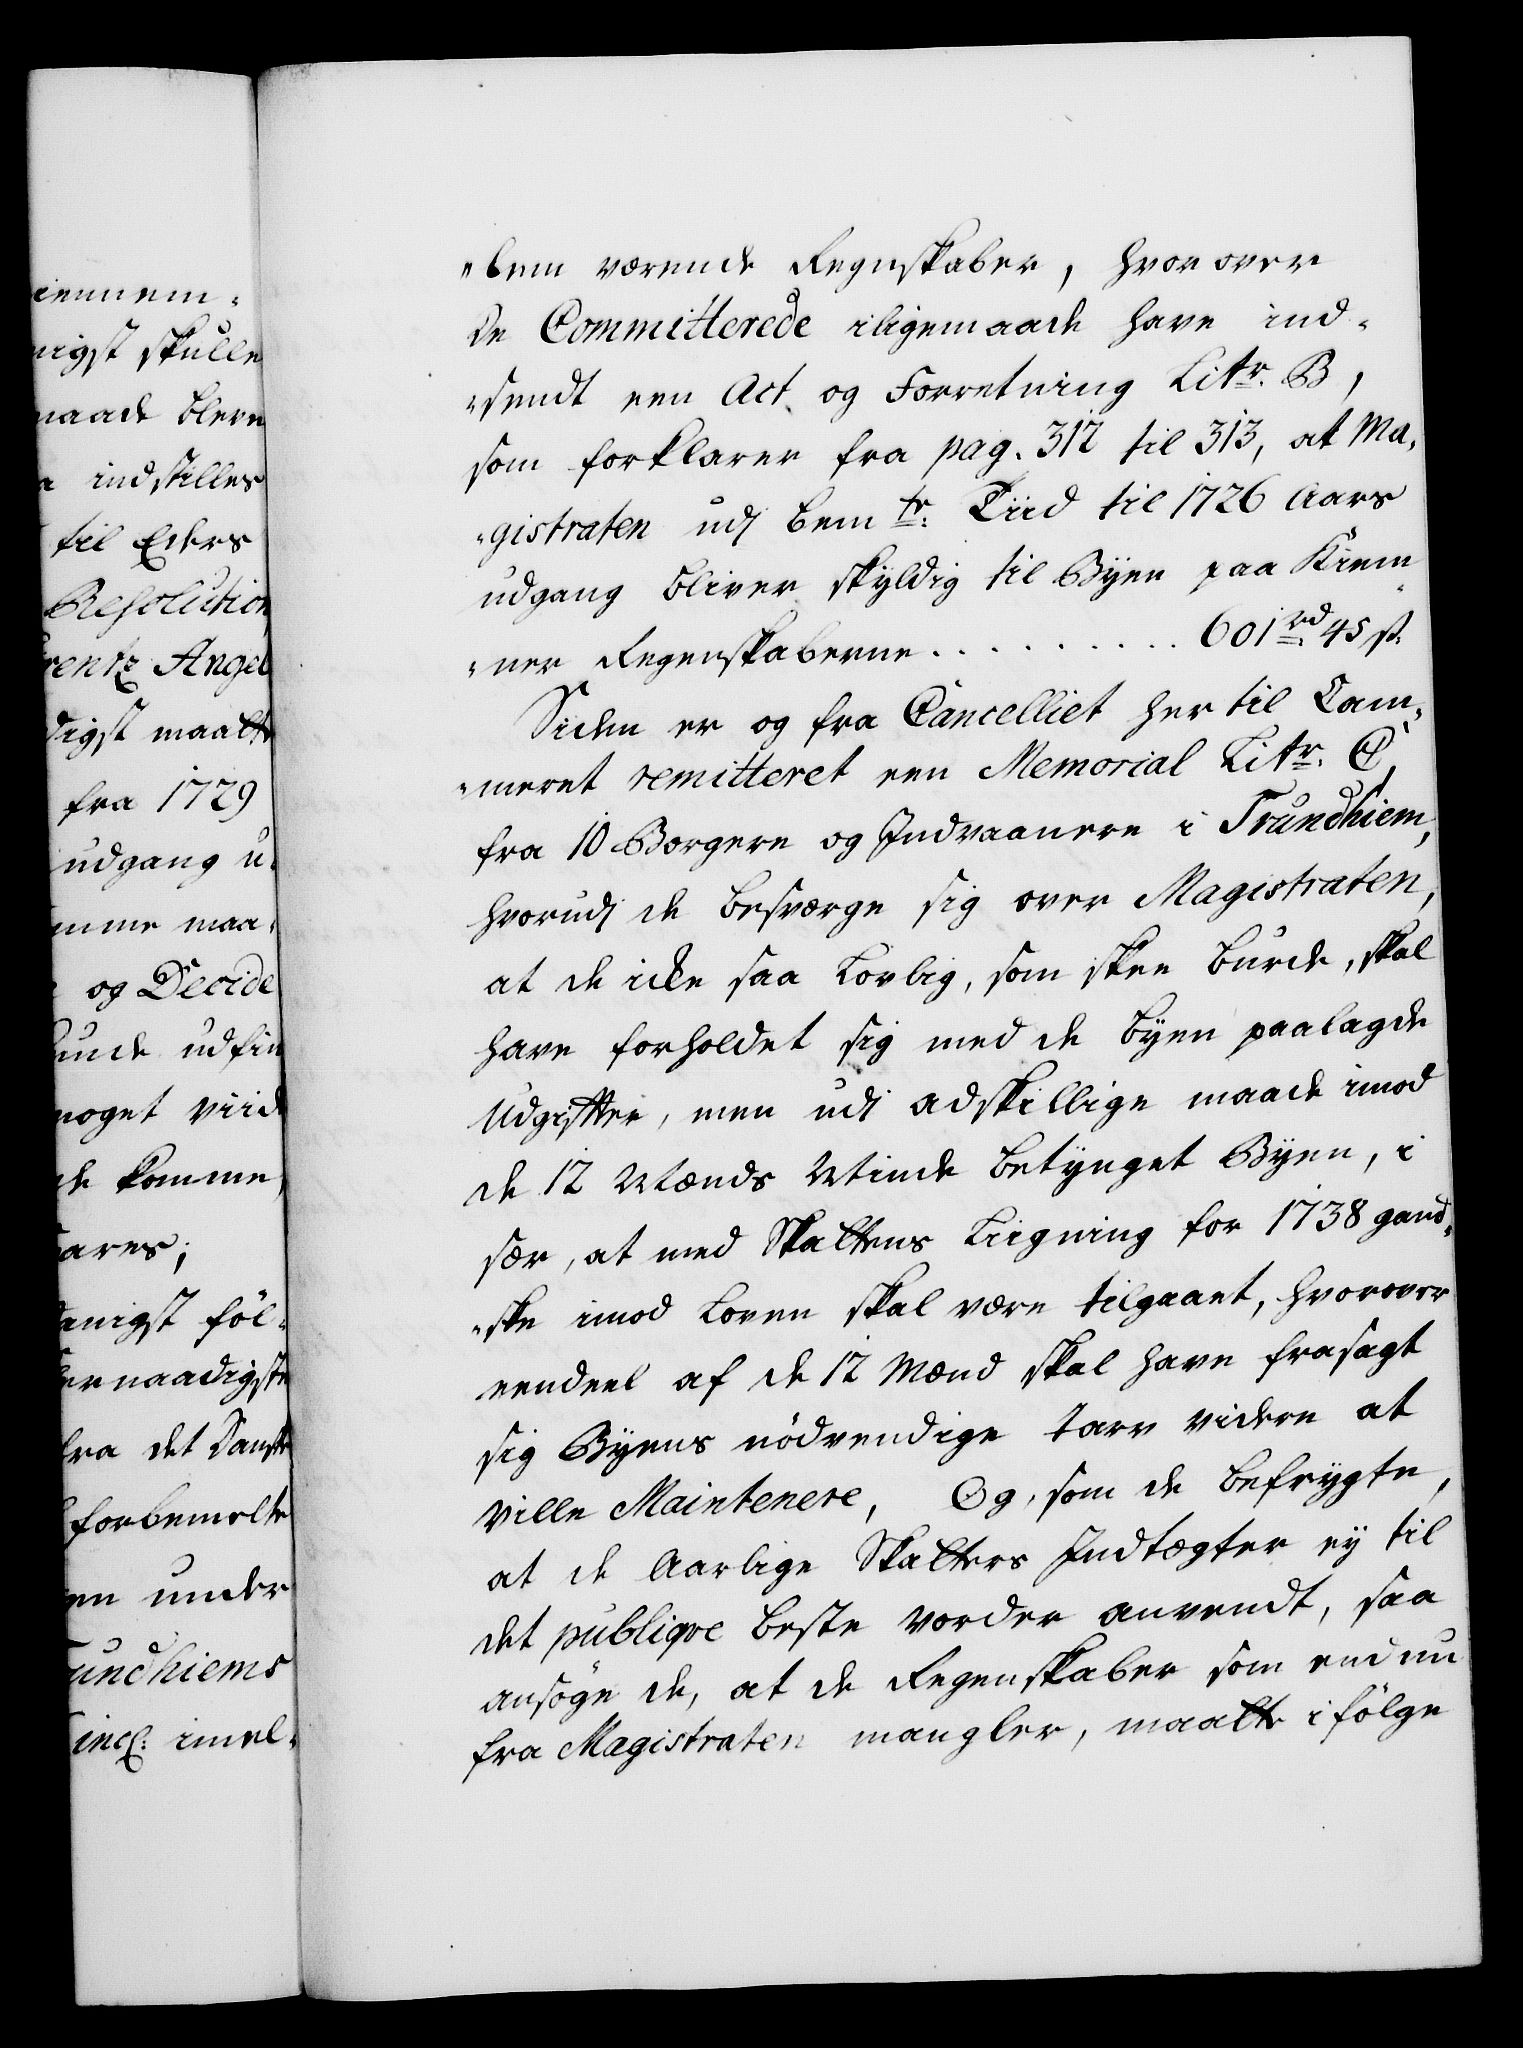 iennem-
nigst skulle
maade bleve
a indstilles
til Eders
Resolution
rentz Angel
digst maatte
fra 1729
udgang u-
mme maa-
og Decide
unde udfin
noget viide
de komme,
ares;
anigst föl-
ernaadigste
fra det Danske
forbemelte
en under
undhiems
incl: imel-
"bem værende Regnskaber, hvorover
de Committerede iligemaade have ind-
"sendt een Act og Forretning Litr. B,
som forklarer fra pag. 312 til 313, at Ma-
"gistraten udj bemte: Tiid til 1726 Aars
udgang bliver skyldig til Byen paa Kiem-
"ner Regenskaberne. . . . . . . . . . 601 rd 45 s.
Siden er og fra Cancelliet her til Cam-
"meret remitteret een Memorial Litr. C,
fra 10 Borgere og Indvaanere i Trundhiem,
hvorudj de besværge sig over Magistraten,
at de icke saa lovlig, som skee burde, skal
have forholdet sig med de Byen paalagde
Udgifter, men udj adskillige maade imod
de 12 Mænds Minde betynget Byen, i
sær, at med Skattens Liigning for 1738 gand-
"ske imod Loven skal være tilgaaet, hvorover
eendeel af de 12 Mænd skal have frasagt
sig Byens nödvendige Tarv videre at
ville Maintenere, Og, som de befrygte,
at de Aarlige Skatters Indtægter ey til
det publiqve beste vorder anvendt, saa
ansöge de, at de Regenskaber som endnu
fra Magistraten mangler, maatte ifölge